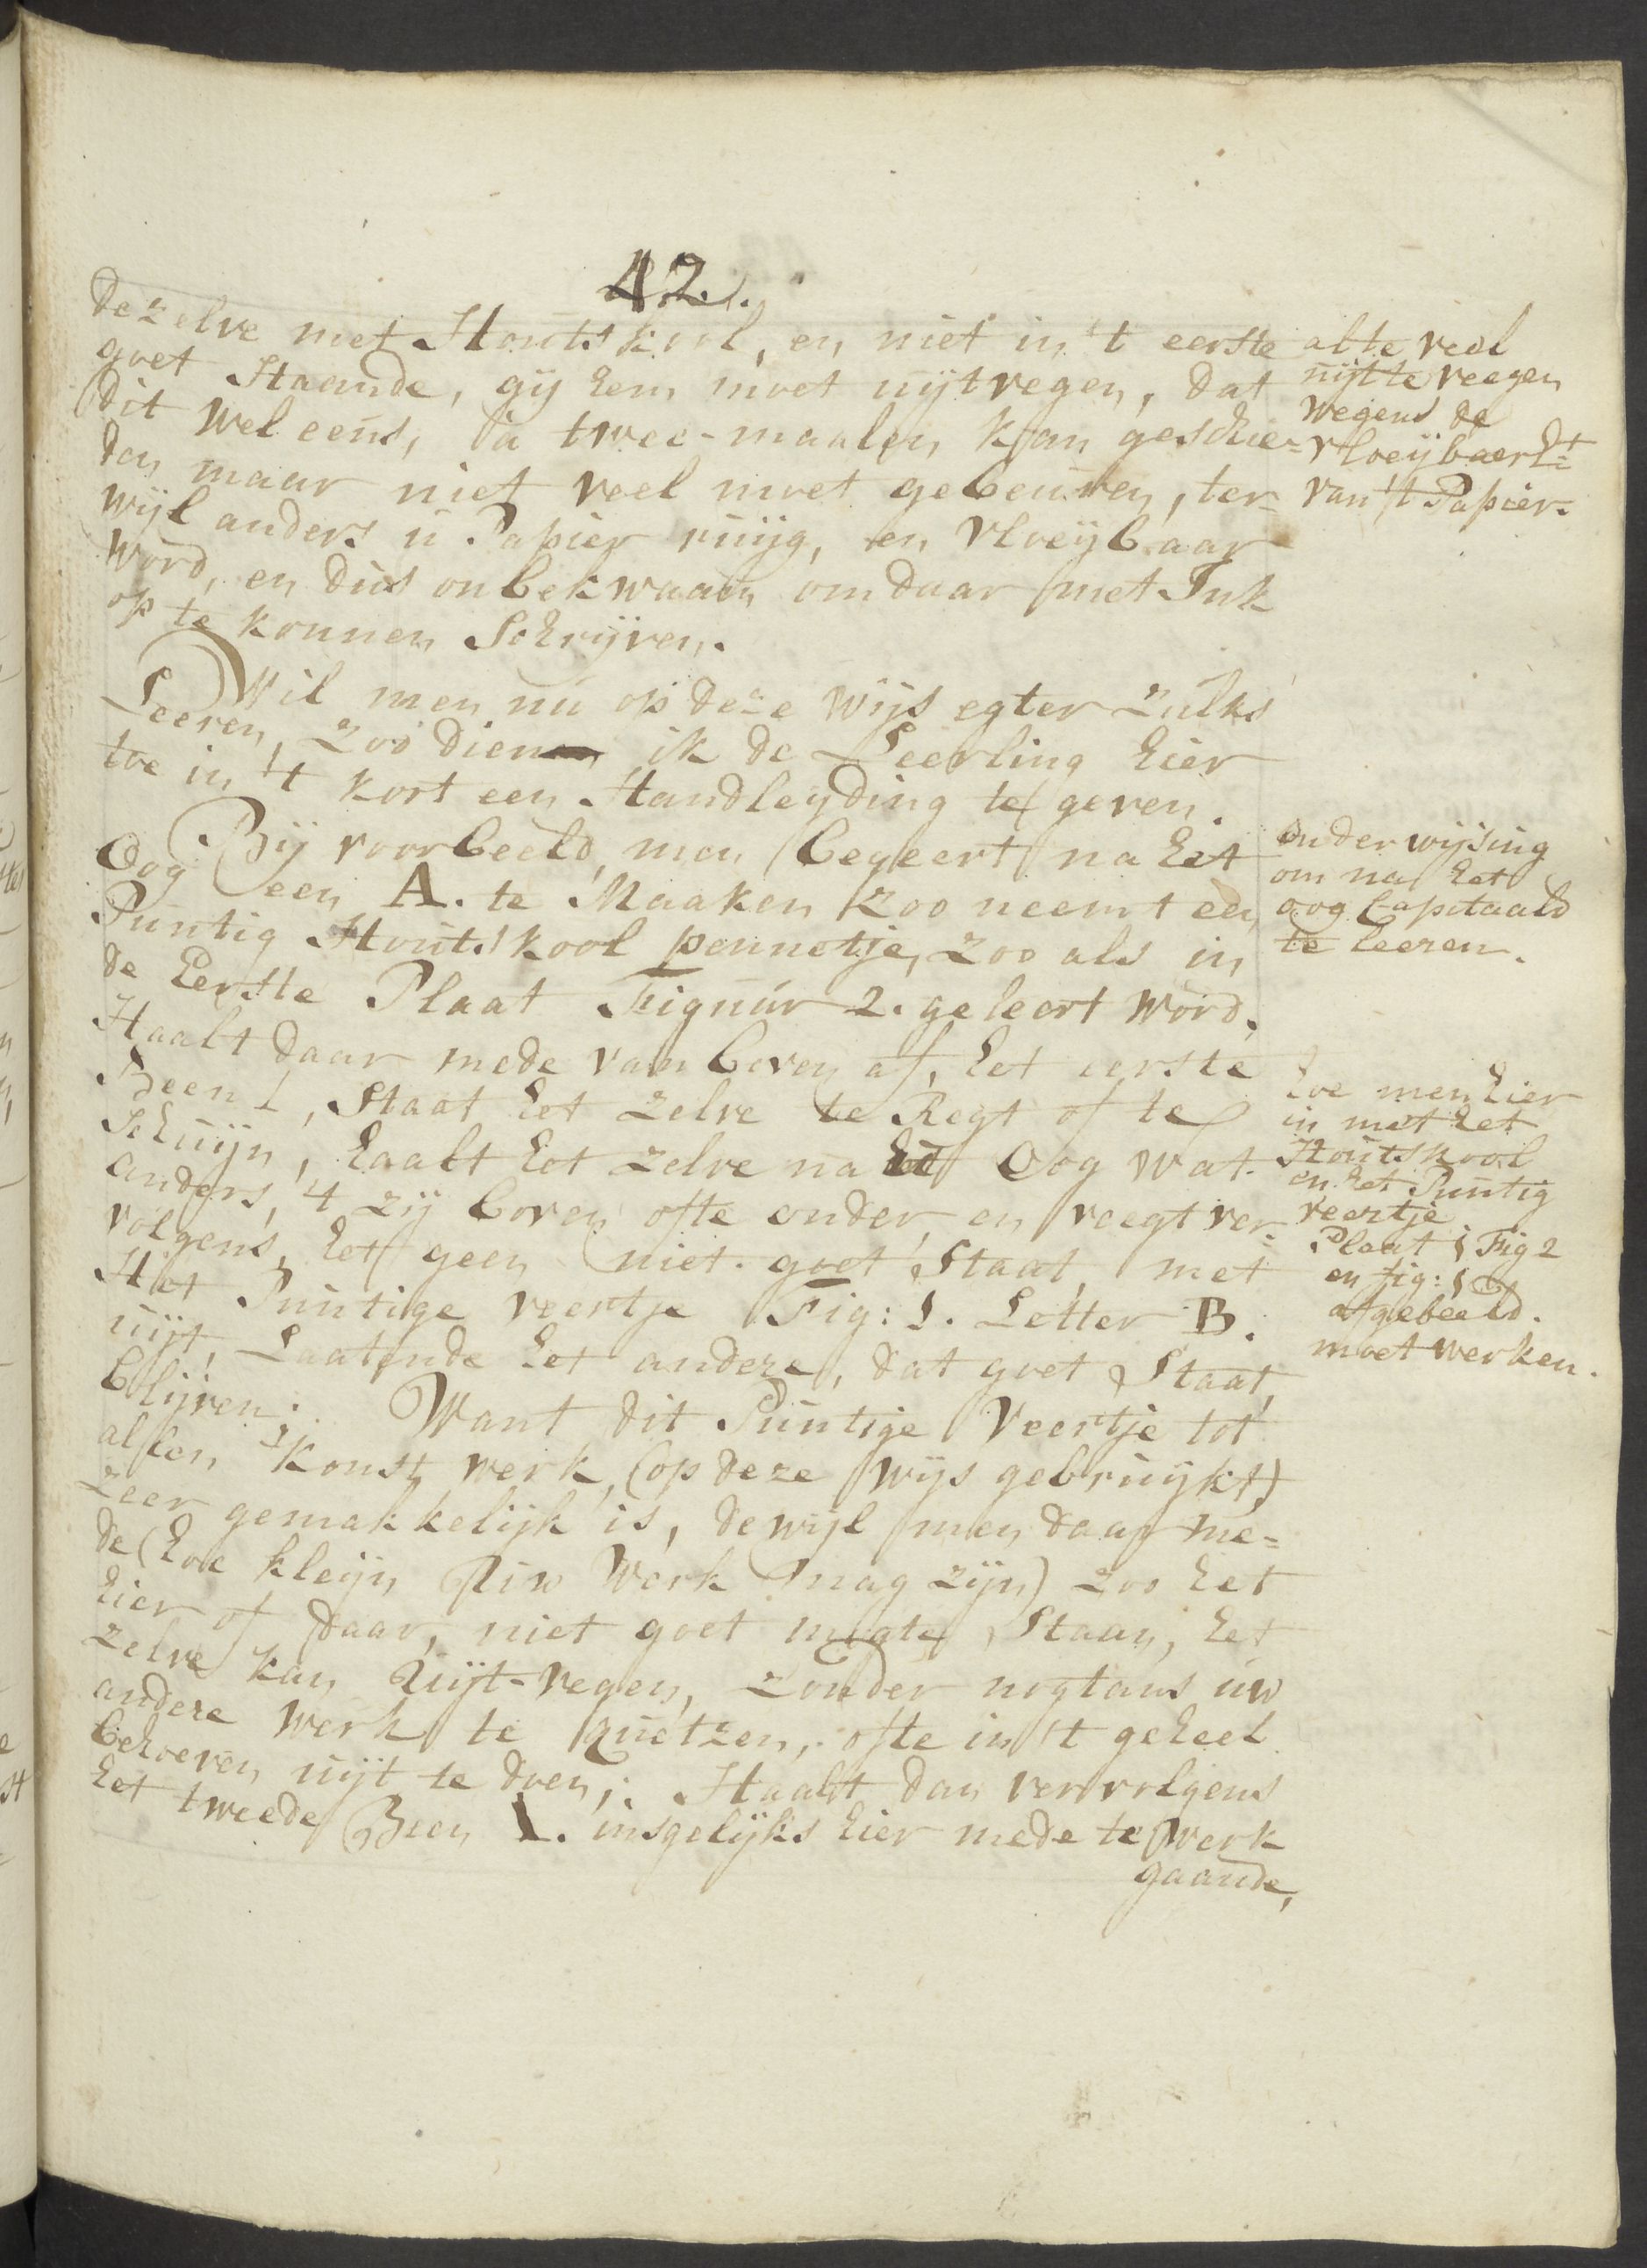 42.
dezelve met Houtskool, en niet in 't eerste
goet staande, gij hem moet uijtvegen, dat
dit wel eens, Ja twee-maalen kan geschie-
den maar niet veel moet gebeuren, ter-
wijl anders u Papier ruijg, en vloeijbaar
word, en dus onbekwaam om daar met Ink
op te konnen Schrijven.
Wil men nu op deze wijs egter zulks
Leeren, zoo dien ik de Leerling hier
toe in 't kort een Handleyding te geven.
Bij voorbeeld, men begeert na het
Oog een A. te Maaken zoo neemt een
Puntig Houtskool pennetje, zoo als in
de Eerste Plaat Figuur 2. geleert word.
Haalt daar mede van boven af, het eerste
Been 1, Staat het zelve te Regt of te
Schuijn, haalt het zelve na het Oog wat
anders, 't zij boven ofte onder, en veegt ver-
volgens, het geen niet goet Staat, met
Het Puntige veertje Fig: 1. Letter B.
uijt, Laatende het andere, dat goet Staat,
blijven; Want dit Puntige Veertje tot
allen Konst werk, (op deze wijs gebruijkt)
zeer gemakkelijk is, dewijl men daar me-
de (hoe kleijn uw Werk mag zijn) zoo het
hier of daar, niet goet mogte Staan, het
zelve kan uijt-vegen, zonder nogtans uw
andere werk te quetzen, ofte in 't geheel
behoeven uijt te doen; Haalt dan vervolgens
het tweede Been 1. insgelijks hier mede te werk
gaande,
al te veel
uijt te veegen
wegens de
vloeijbaerht
van 't Papier.
onderwijsing
om na het
oog Capitaals
te leeren.
hoe men hier
in met het
Houtskool
en het Puntig
veertje
Plaat 1 Fig 2
en fig: 1
afgebeeld.
moet werken.